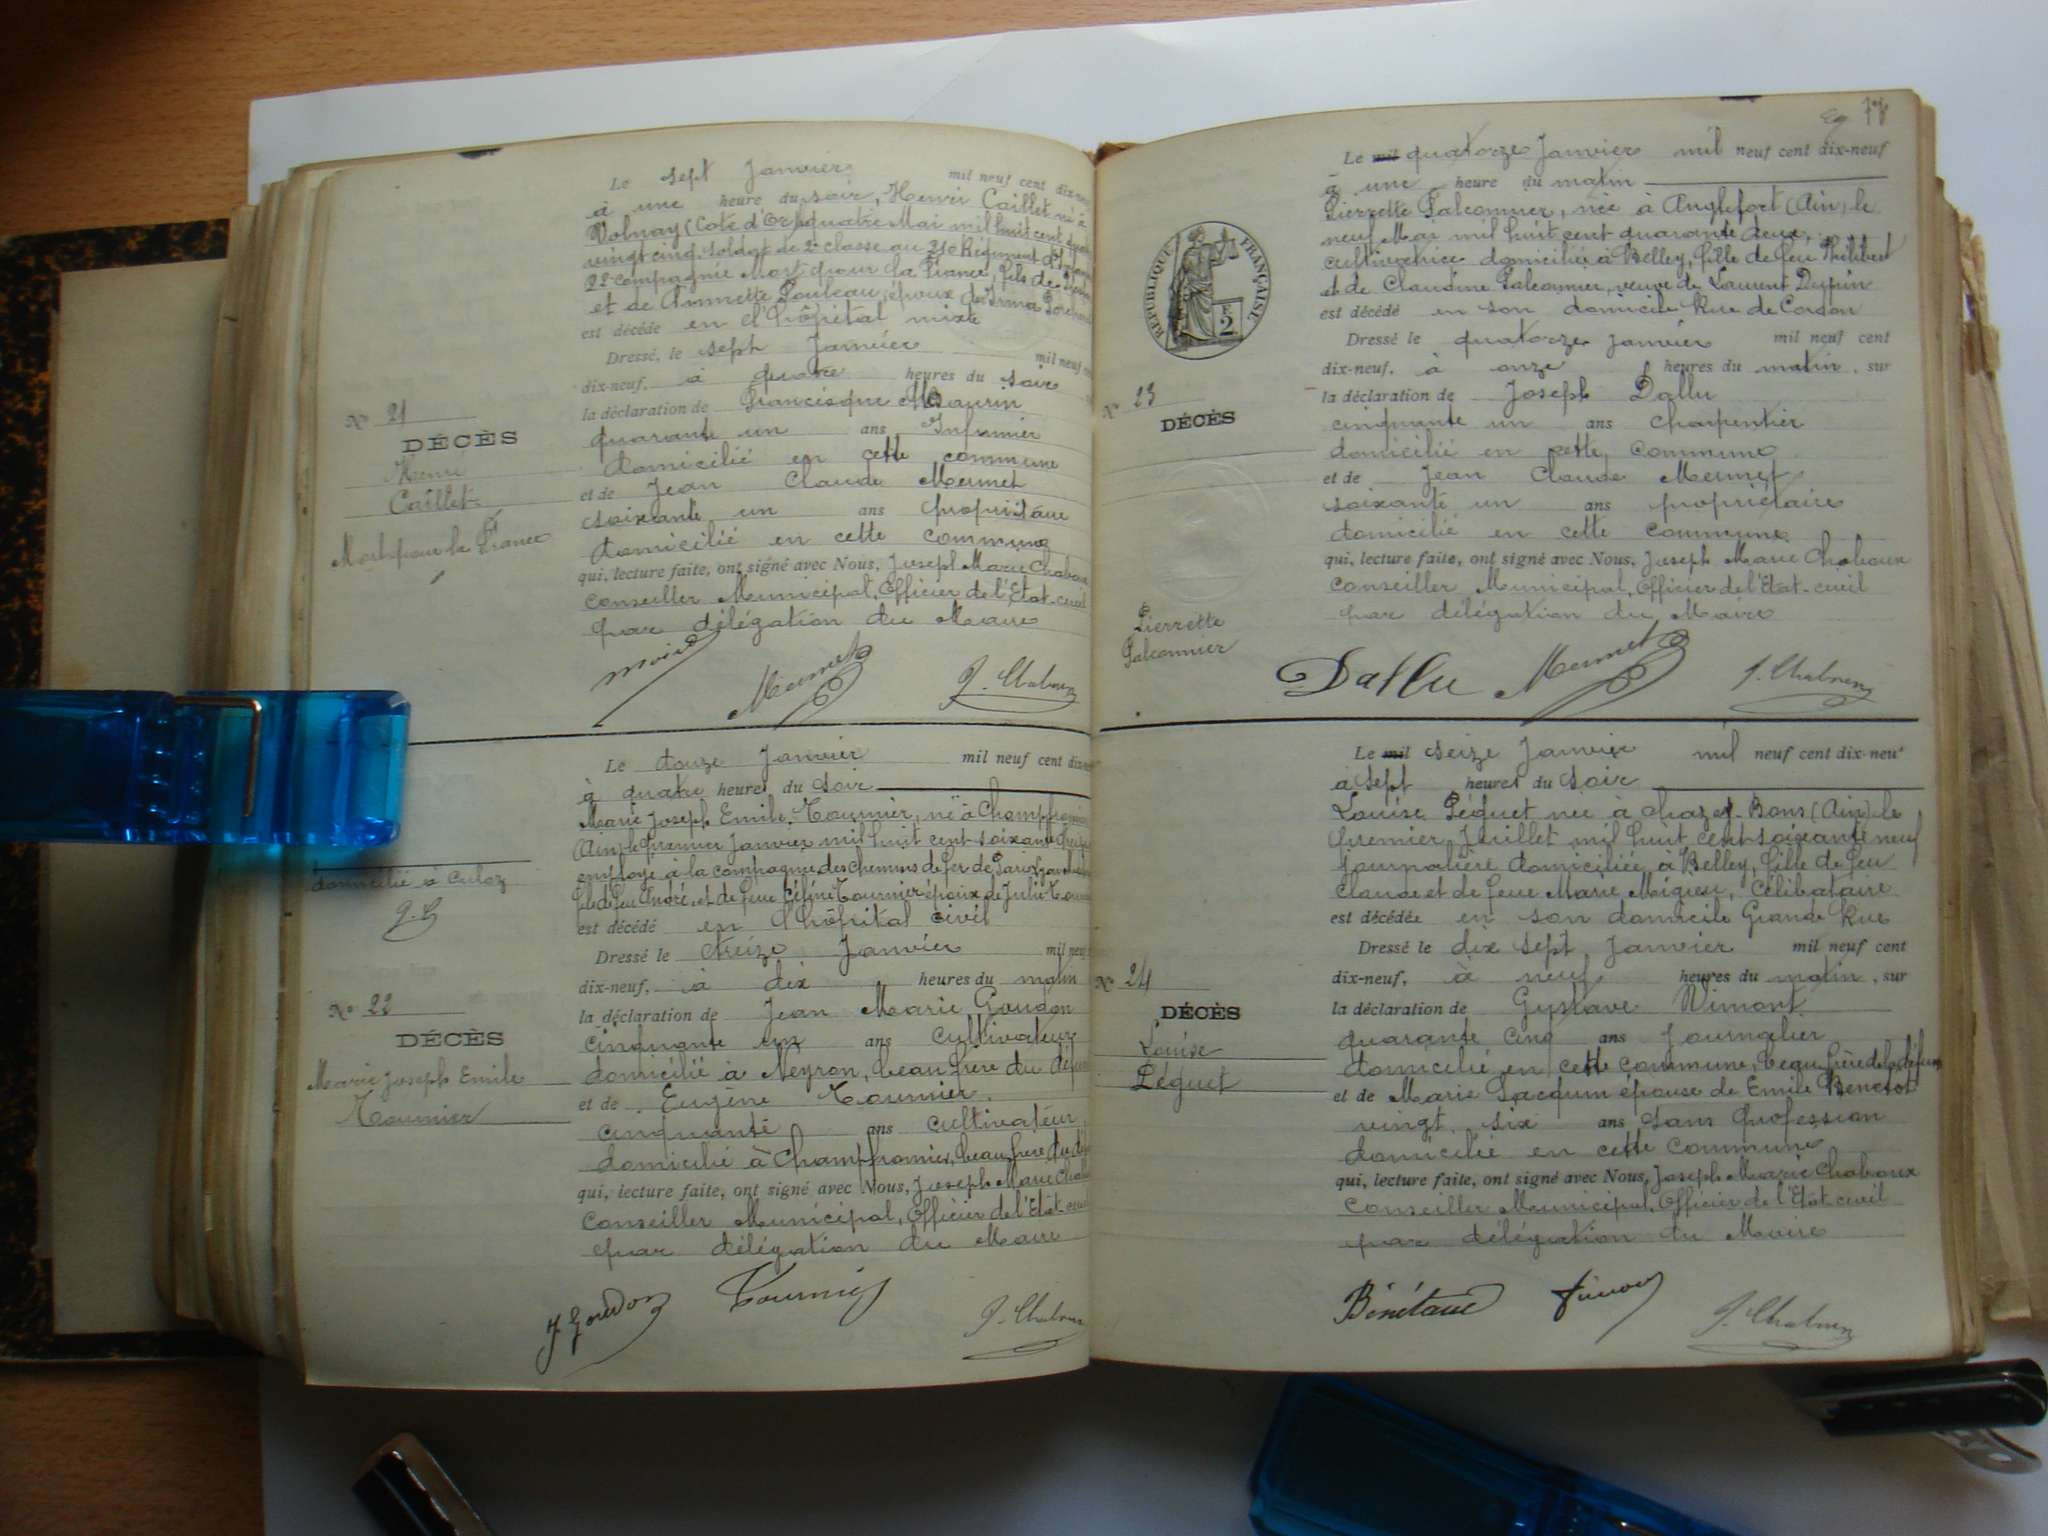 Le sept Janvier mil neuf cent
à une heure du soir, Henri Caillet né à
Volnay (Cote d'Or) quatre Mai mil huit cent
vingt cinq soldat de 2e classe au Régiment
22e compagnie Mort pour la France, fils de
et de Annette Pouleau, époux de Irma
est décédé en l'hôpital mixte
Dressé, le sept Janvier mil neuf
dix-neuf, à quatre heures du soir
la déclaration de Francisque
quarante un ans Infirmier
domicilié en cette commune
et de Jean Claude Mermet
soixante un ans propriétaire
domicilié en cette commune
qui, lecture faite, ont signé avec Nous, Joseph Marie
Conseiller Municipal, Officier de l'Etat-civil
par délégation du Maire
Mermet
N° 21
DÉCÈS
Henri
Caillet
Mort pour la France
Le douze Janvier mil neuf cent
à quatre heures du soir
Marie Joseph Emile Tournier, né à Champfromier
(Ain) le premier Janvier mil huit cent soixante
employé à la compagnie des chemins de fer de Paris Lyon
fils de feu André et de feue Céline Tournier époux de Julie
est décédé en l'hôpital civil
Dressé le treize Janvier mil neuf
dix-neuf, à dix heures du matin
la déclaration de Jean Marie Goudon
cinquante un ans cultivateur
domicilié à Neyron, beau frère du
et de Eugène Tournier
cinquante ans cultivateur
domicilié à Champfromier, beau frère du
qui, lecture faite, ont signé avec Nous, Joseph Marie
Conseiller Municipal, Officier de l'Etat-civil
par délégation du Maire
J Goudon Tournier
domicilié à Culoz
N° 22
DÉCÈS
Marie Joseph Emile
Tournier
RÉPUBLIQUE FRANÇAISE
E
2
Le mil quatorze Janvier mil neuf cent dix-neuf
à une heure du matin
Pierrette Falconnier, née à Anglefort (Ain) le
neuf Mai mil huit cent quarante deux,
cultivatrice domiciliée à Belley, fille de feu Philibert
et de Claudine Falconnier, veuve de Laurent
est décédé en son domicile Rue de
Dressé le quatorze Janvier mil neuf cent
dix-neuf, à onze heures du matin, sur
la déclaration de Joseph Dallu
cinquante un ans charpentier
domicilié en cette commune
et de Jean Claude Mermet
soixante un ans propriétaire
domicilié en cette commune
qui, lecture faite, ont signé avec Nous, Joseph Marie Chaboux
Conseiller Municipal, Officier de l'Etat-civil
par délégation du Maire
Dallu Mermet
N° 23
DÉCÈS
Pierrette
Falconnier
Le mil seize Janvier mil neuf cent dix-neuf
à sept heures du soir
Louise Péguet née à Chazey-Bons (Ain) le
premier Juillet mil huit cent soixante neuf
journalière domiciliée à Belley, fille de feu
Claude et de feue Marie Migieu, Célibataire
est décédée en son domicile Grande Rue
Dressé le dix sept Janvier mil neuf cent
dix-neuf, à neuf heures du matin, sur
la déclaration de Gustave Vimont
quarante cinq ans Journalier
domicilié en cette commune, beau frère de la
et de Marie Jacquin épouse de Emile
vingt six ans sans profession
domicilié en cette commune
qui, lecture faite, ont signé avec Nous, Joseph Marie Chaboux
Conseiller Municipal, Officier de l'Etat-civil
par délégation du Maire
N° 24
DÉCÈS
Louise
Péguet